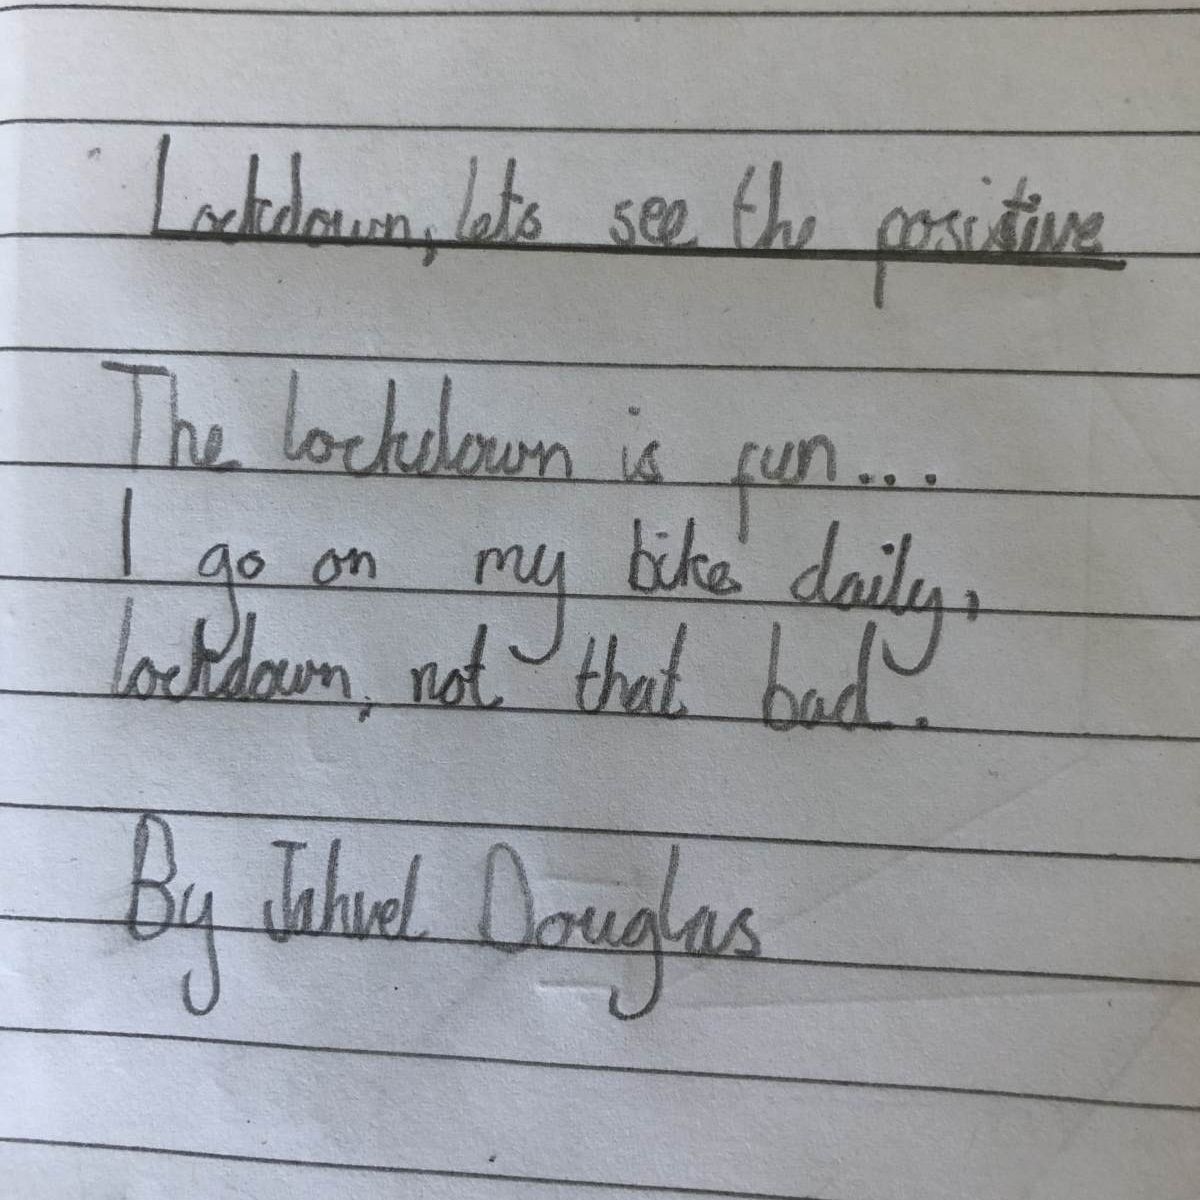 Lockdown, lets see the positive
The lockdown is fun...
I go on my bike daily,
lockdown, not that bad.
By Jahvel Douglas